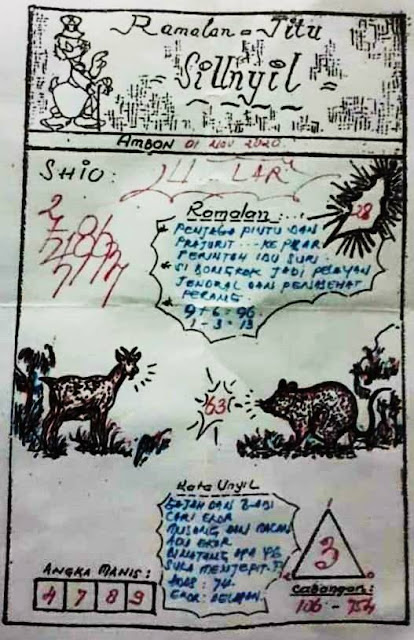 Ramalan = Titu
= Si Unyil =
AMBON 01 NOV 2020
SHIO:
LAR
28
Ramalan....
* PENJAGA PINTU DAN
PRAJURIT... KE PASAR
PERINTAH IBU SURI.
* SI BONGKOK JADI PELAYAN
JENDRAL DAN PENASEHAT
PERANG.
9 + 6 = 96
1 - 3 = 13
63
Kata Unyil
GAJAH DAN BABI
CARI EKOR
MUSANG DAN MACAN
ADU EKOR
BINATANG APA YG
SUKA MENJEPIT
EKOR: DELAPAN.
ANGKA MANIS:
4 7 8 9
3
Cabangan:
106 - 754